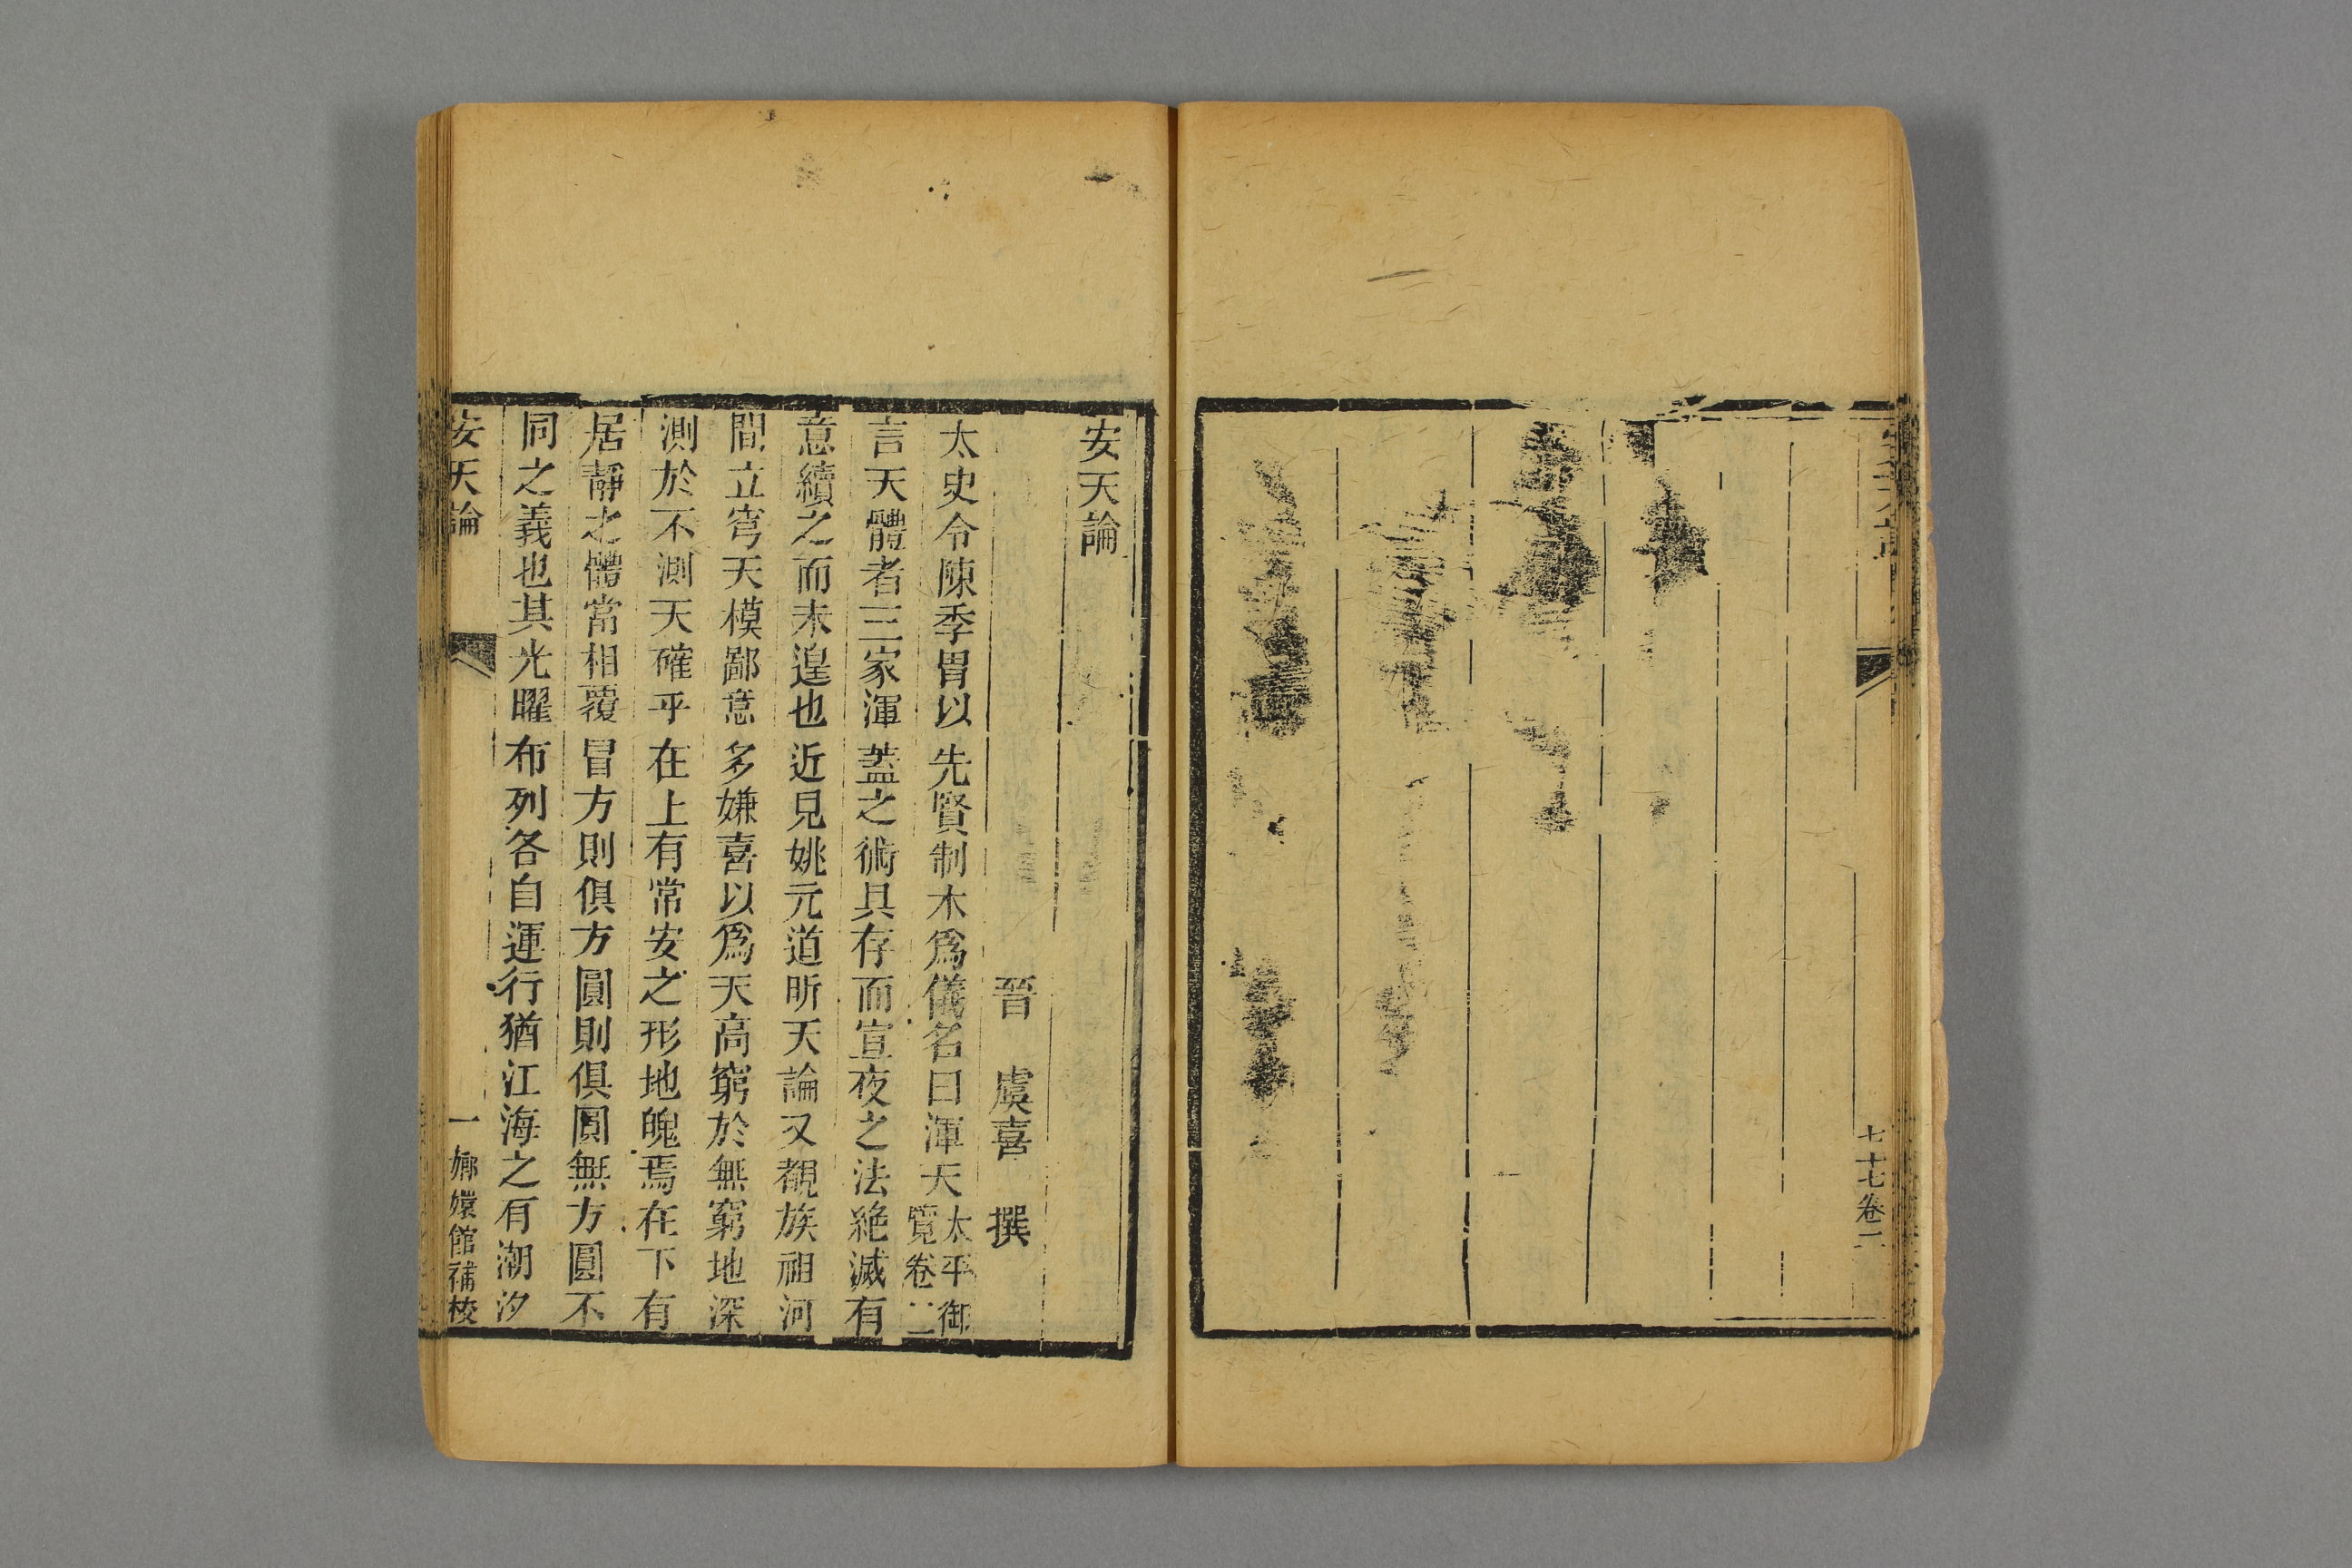 七十七卷二
安天論
晉 虞喜 撰
太史令陳季胄以先賢制木爲儀名曰渾天太平御覽卷二
言天體者三家渾蓋之術具存而宣夜之法絶滅有
意續之而未遑也近見姚元道昕天論又覩族祖河
間立穹天模鄙意多嫌喜以爲天高窮於無窮地深
測於不測天確乎在上有常安之形地魄焉在下有
居靜之體常相覆冒方則俱方圓則俱圓無方圓不
同之義也其光曜布列各自運行猶江海之有潮汐
安天論 一 嫏嬛館補校